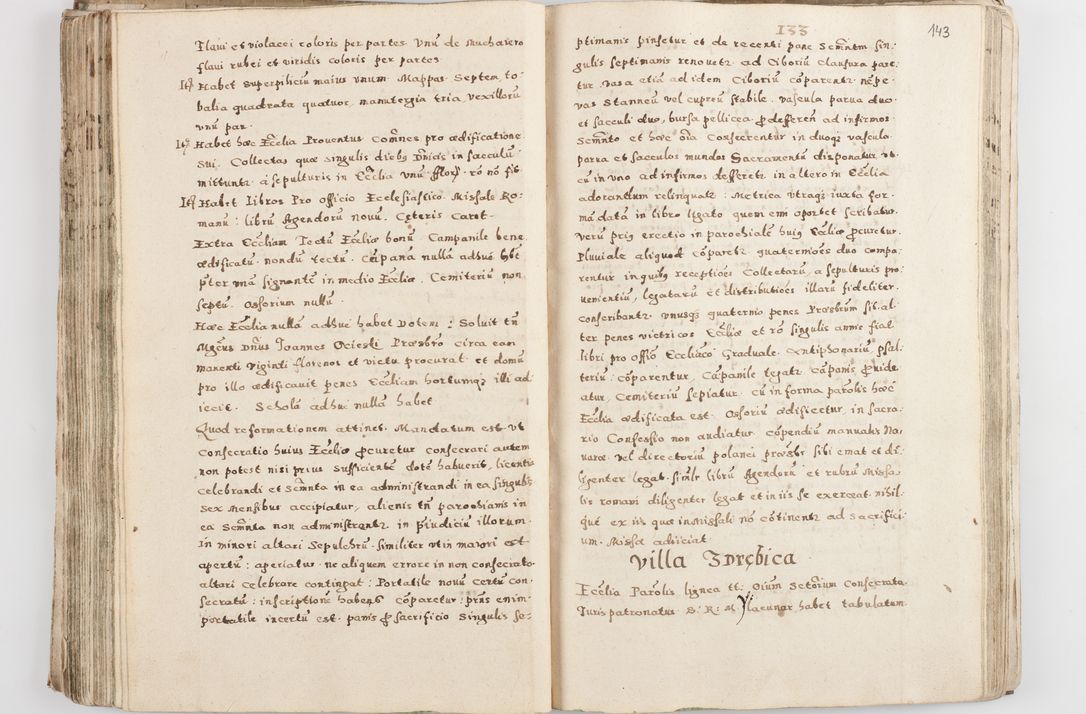 Flavi et violacei coloris per partes Unū de Mucharero
flavi rubei et viridis coloris per partes
Itē Habet superpiliciū maius vnum. Mappas Septem, to-
balia quadrata quatuor, manutergia tria vexillorū
vnū par.
Itē Habet hæc Ecclia Proventus Comēs pro ædificatione
sui. Collectas quæ singulis diebꝫ Dnicis in sacculū
mittuntꝛ à sepulturis in Ecclia vnū flor. rō nō fit
Itē Habet Libros Pro officio Ecclesiastico Missale Ro-
manū: librū Agendorū novū. Ceteris Caret.
Extra Eccliam Tectū Eccliæ bonū. Campanile bene
ædificatū. nondū tectū. Cāpana nulla adhuc hēt
p̄ter vnā signantē in medio Eccliæ. Cemiteriū non
septū. Ossorium nullū.
Hæc Ecclia nullā adhuc habet Dotem: Soluit tn̄
Mgcus Dnus Joannes Ocieski Præsbrō circa eam
manenti viginti florenos et victū procurat et domū
pro illo ædificavit penes Eccliam hortumqꝫ illi ad-
iecit. Scholā adhuc nullā habet
Quod reformationem attinet. Mandatum est vt
Consecratio huius Eccliæ ꝓcuretur consecrari autem
non potest nisi prius sufficientē dotē habuerit, licentia
celebrandi et Scmnta in ea administrandi in ea singulis
sex Mensibus accipiatur, alienis tn̄ parochianis in
ea Scmnta non administrentꝛ in p̄iudiciū illorum.
In minori altari Sepulchrū. similiter vt in maiori est
apertū: aperiatur ne aliquem errore in non consecrato
altari celebrare contingat: Portatile novū certū con-
secratū: inscriptionē habens cōparetur: p̄ns enim
portatile incertū est. panis ꝓ sacrificio Singulis se-
133
143
ptimanis pinsetur et de recenti pane Scmntm sin-
gulis septimanis renovetꝛ ad Ciboriū Clausura pare-
tur. Vasa etiā ad idem Ciboriū cōparentꝛ nēpe
vas stanneū vel cupreū stabile. vascula parva duo
et sacculi duo, bursa pellicea ꝓ defferen ad infirmos
Scmnto et hæc oīa Consecrentur in duoqꝫ vascula
parva et sacculos mundos Sacramentū disponatur vt
cū in vno ad infirmos defferetꝛ in altero in Ecclia
adorandum relinquatꝛ: Metrica vtraqꝫ iuxta for-
mā data in libro ligato quem emi oportet scribatur
verū priꝫ erectio in parochialē huiꝫ Eccliæ ꝓcuretur.
Pluviale aliquod cōparetꝛ quaterniōes duo compa-
rentur in quibꝫ receptiōes Collectarū, a sepulturis pro-
venientiū, legatarū et distributiōes illarū fideliter
conscribantꝛ vnusqꝫ quaternio penes Præsbrum sit al-
ter penes vitricos Eccliæ et rō singulis annis fiat
libri pro offiō Eccliaco Graduale Antiphonariū, psal-
teriū: cōparentur, Cāpanile tegatꝛ cāpanis ꝓvide-
atur, Cemiteriū sepiatur. Cū in forma parolis hæc
Ecclia ædificata est. Ossoriū ædificetur, in sacra-
rio Confessio non audiatur cōpendiū manualis Na-
varæ vel directoriū polanci præsbr sibi emat et di-
ligenter legat. simile librū Agendorū et rubrū Missa-
lis romani diligenter legat et in iis se exerceat. nihil-
quē ex iis quæ in Missali nō cōtinentꝛ ad sacrifici-
um Missæ adiiciat.
Villa Zdrębica
Ecclia Parolis lignea tt. Oium Sctorum Consecrata.
Iuris patronatus S. R. M. lacunar habet tabulatum.